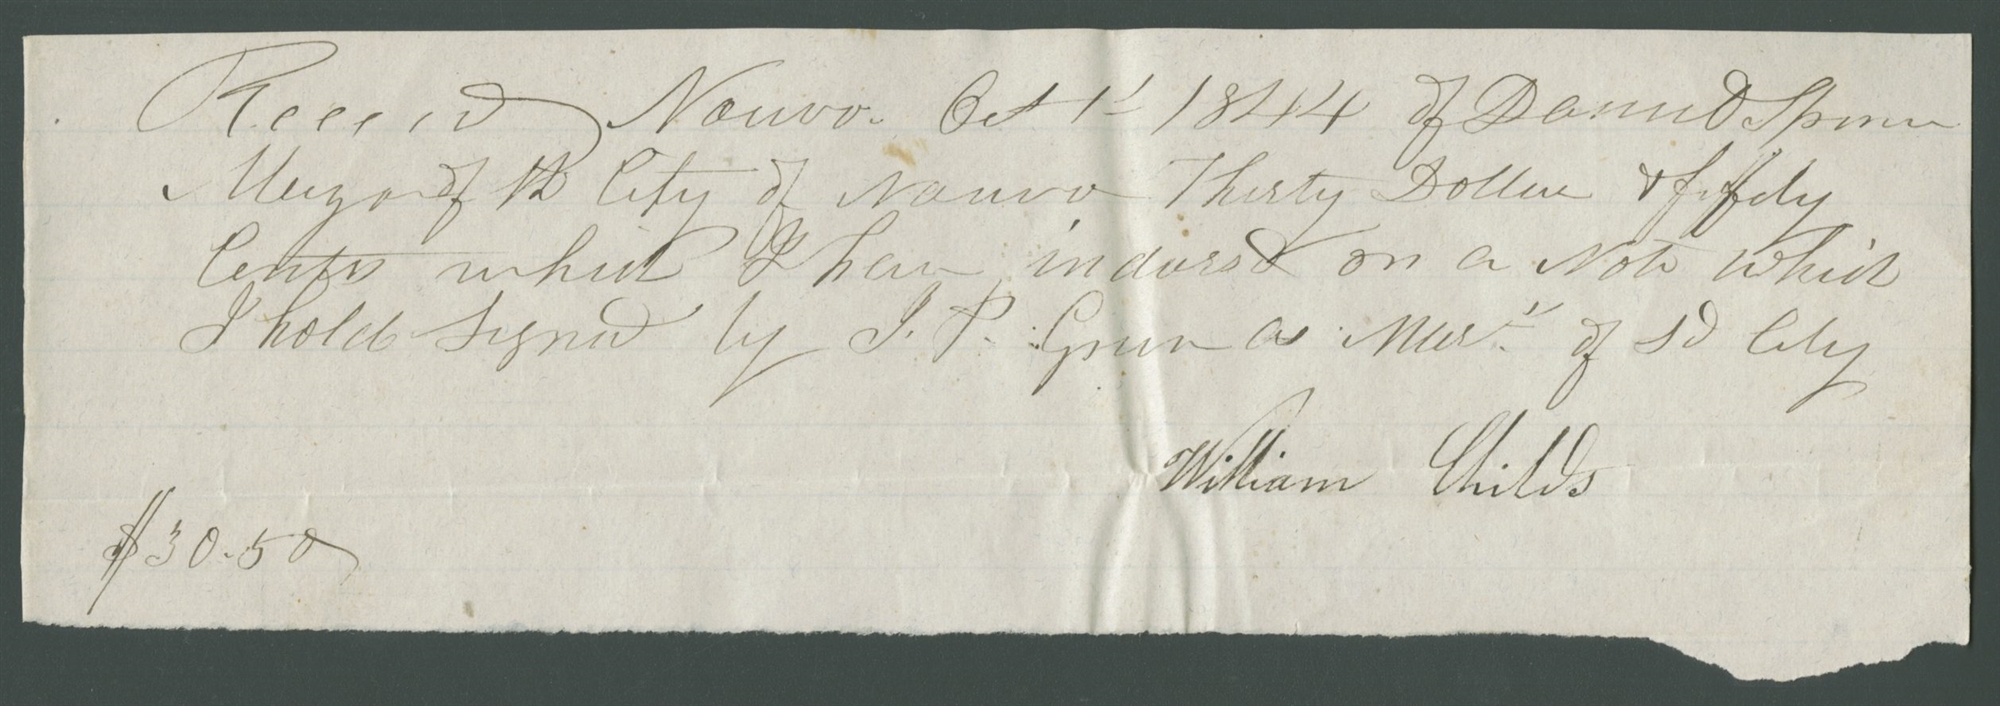 Receivd Nauvoo Oct 1st 1844 of Daniel Spencer
Mayor of the City of Nauvoo Thirty Dollers & fiffty
Cents which I have indorsed on a Note which
I hold signed by J. P. Green as Mar.l of sd City
William Childs
$30.50